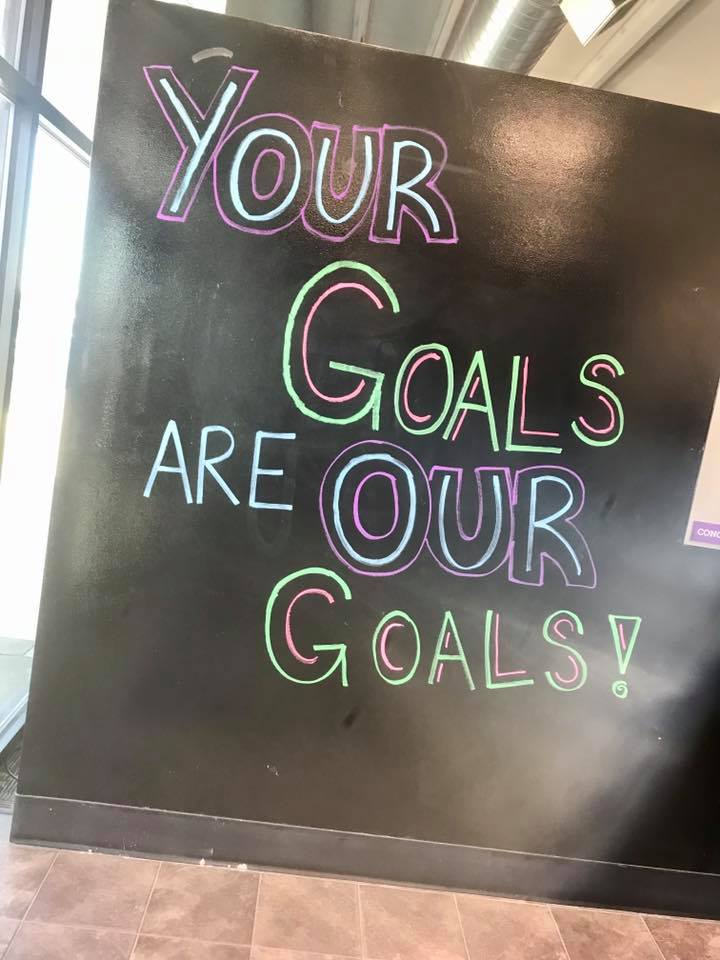 YOUR
GOALS
ARE OUR
GOALS!